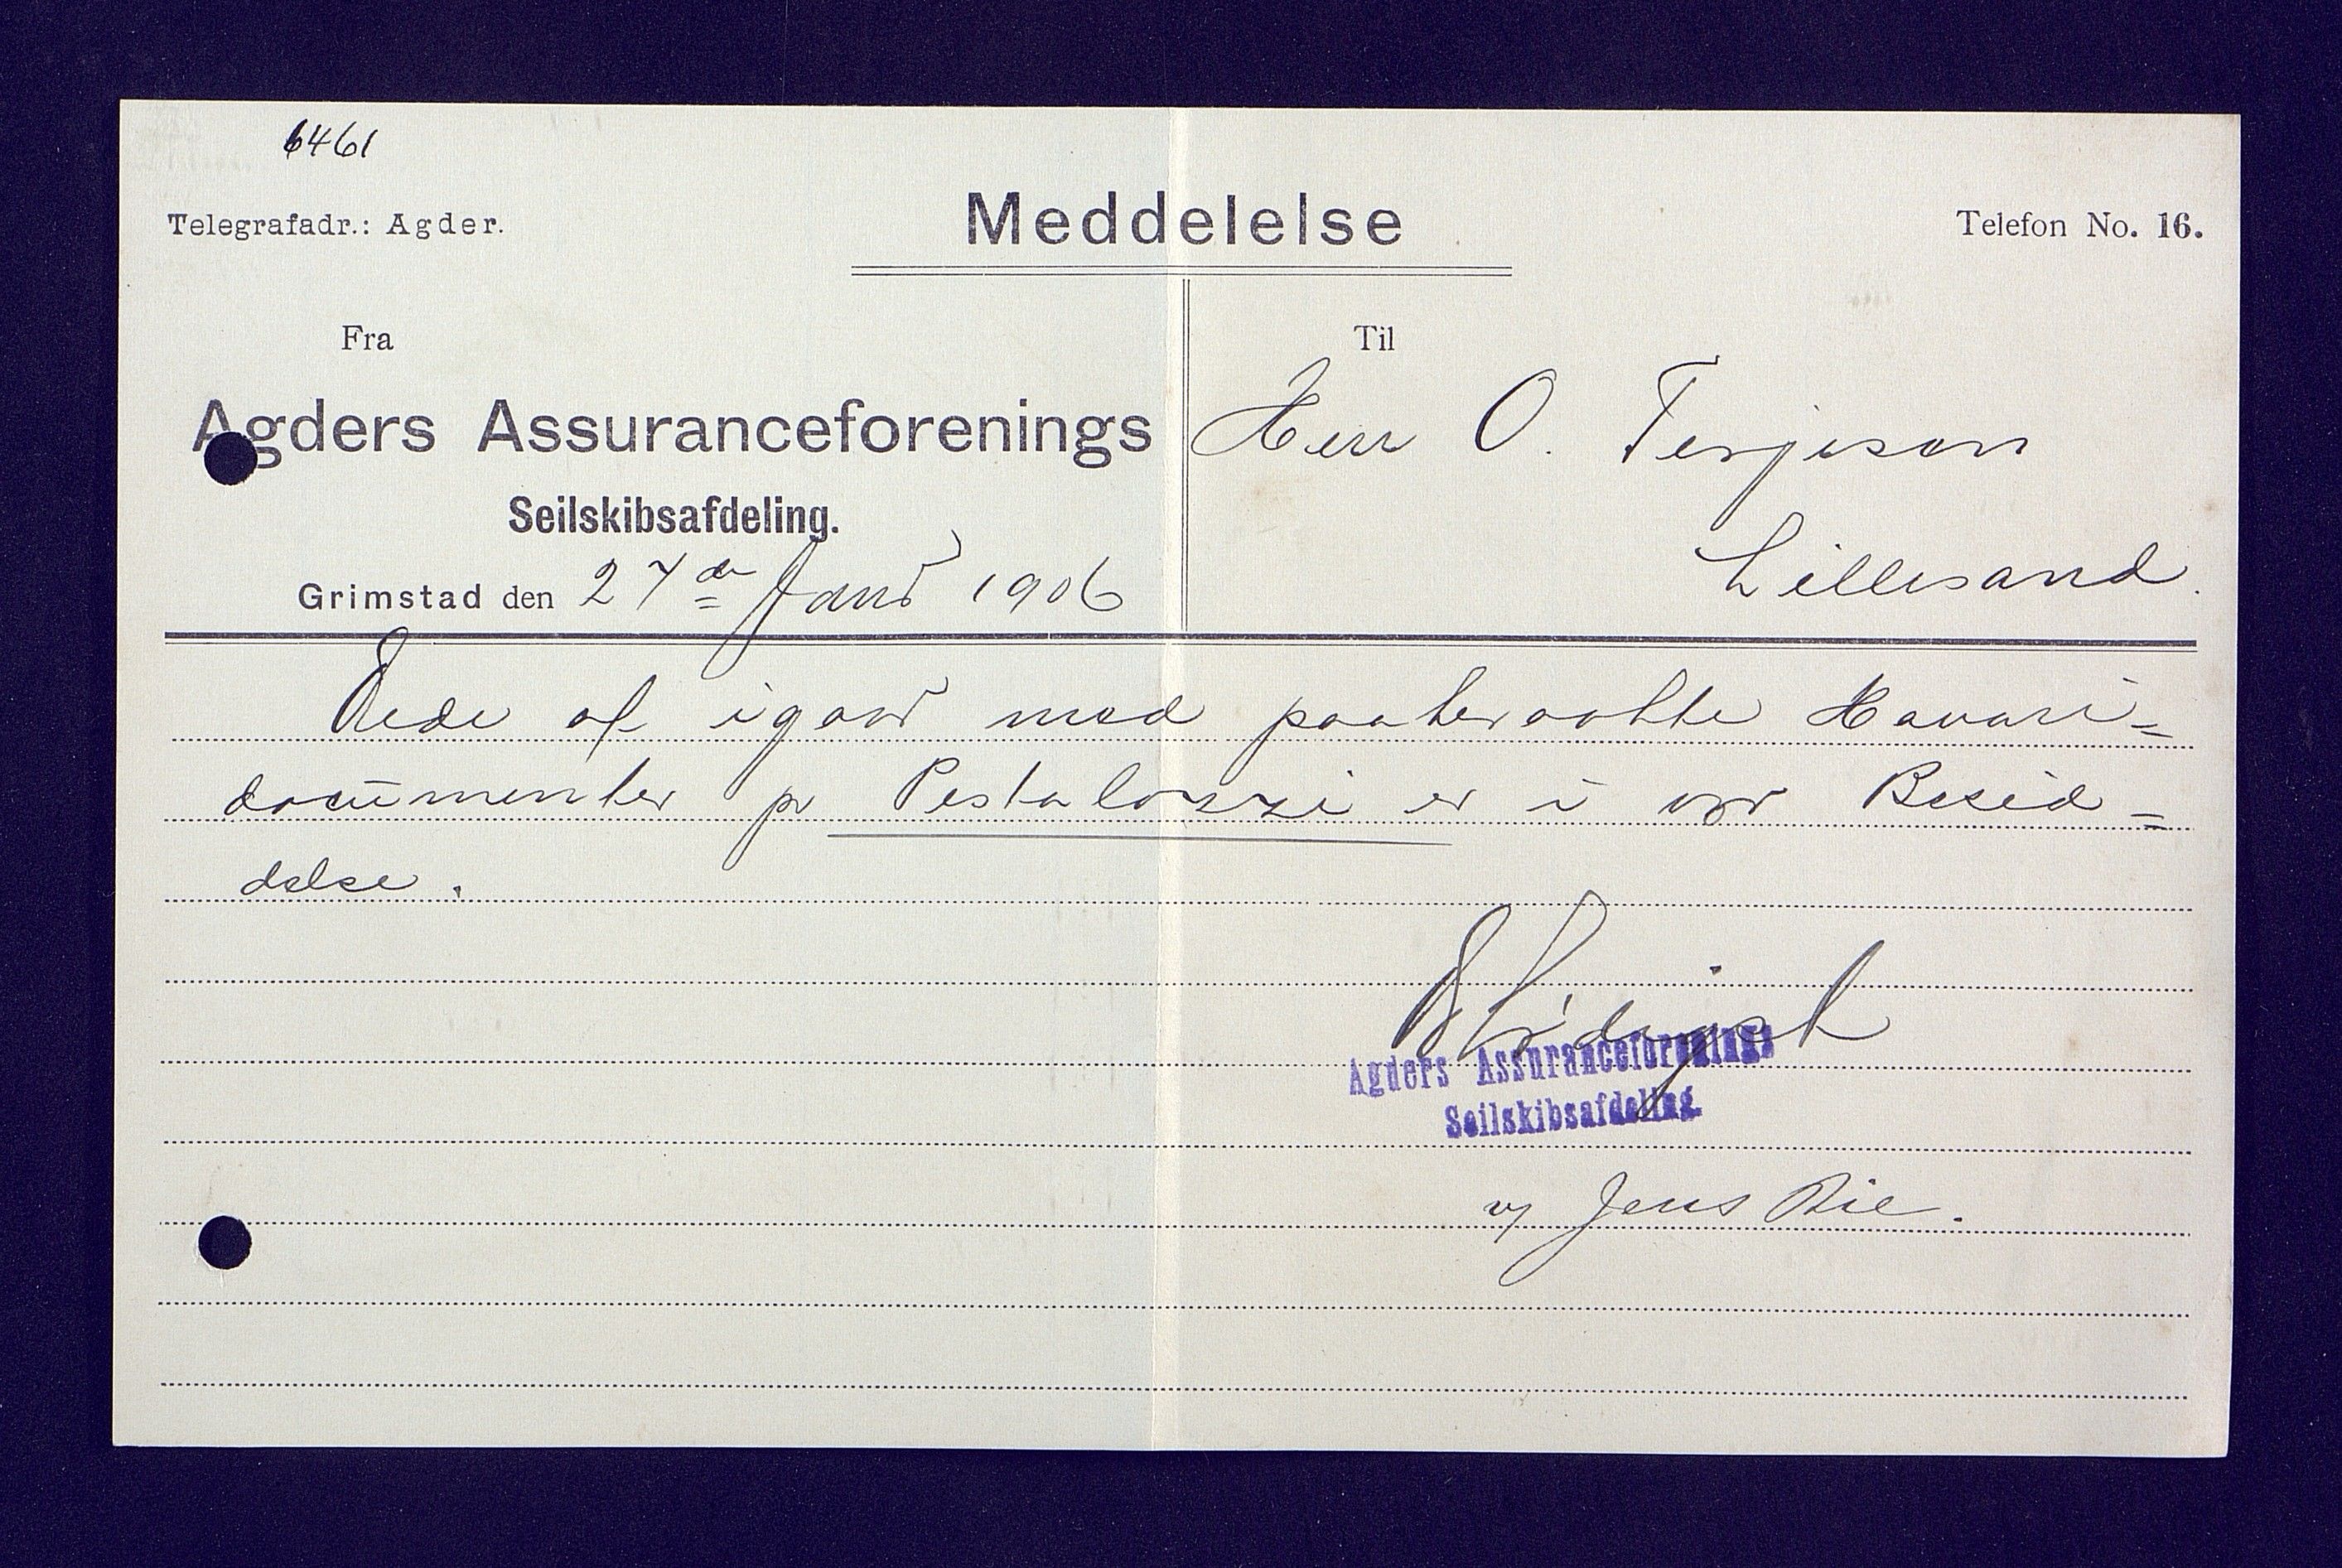 6461
Telegrafadr.: Agder.
Meddelelse
Telefon No. 16.
Fra
Agders Assuranceforenings
Seilskibsafdeling.
Grimstad den 27de Janr 1906
Til
Herr O. Terjesen
Lillesand.
Eede af igaar med paaberaabte Havari=
documenter pr Pestalozzi er i vor Besid=
delse.
Ærbødigst
Agders Assuranceforenings
Seilskibsafdeling.
v/ Jens Bie.